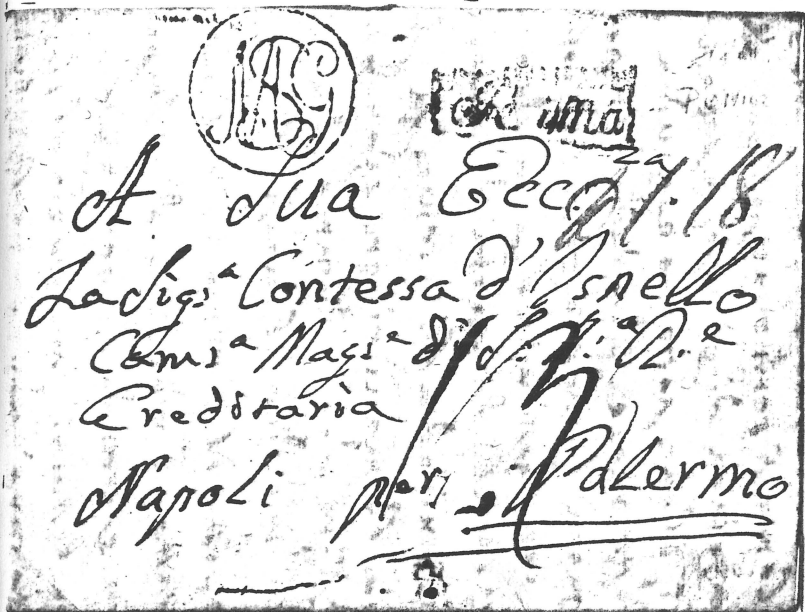 NAG
Roma
A Sua Ecc.za 21.18
La Sigr.a Contessa d'Isnello
Camr.a Magr.e di S. A.: R.e
Ereditaria
Napoli per Palermo